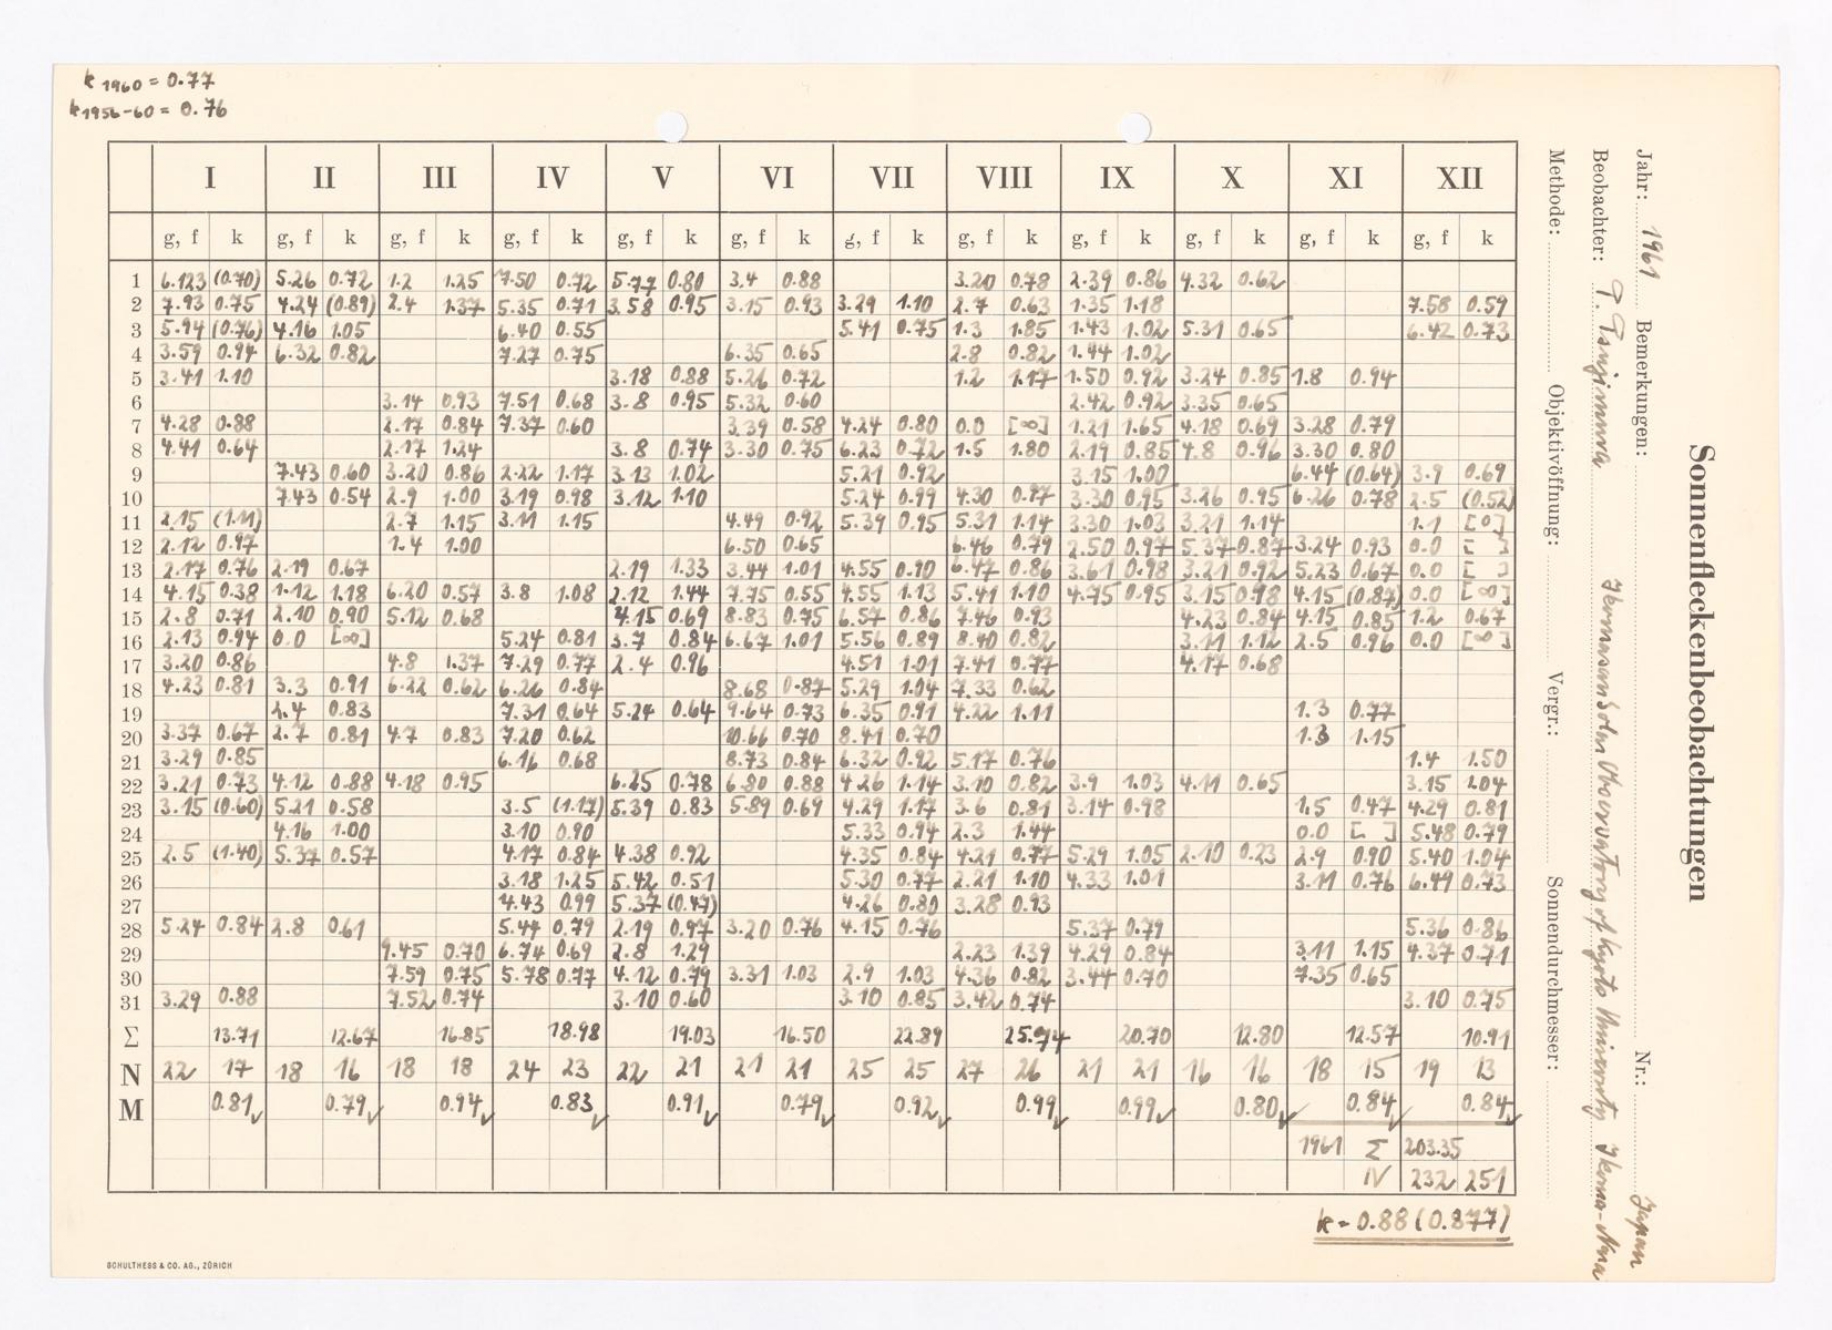 k 1960 = 0.77
k 1956-60 = 0.76
Sonnenfleckenbeobachtungen
Jahr: 1961 Bemerkungen: Nr.: Japan
Beobachter: T. Tsujimura Ikomasan Solar Observatory of Kyoto University Ikoma-Nara
Methode: Objektivöffnung: Vergr.: Sonnendurchmesser:
I II III IV V VI VII VIII IX X XI XII
g, f k g, f k g, f k g, f k g, f k g, f k g, f k g, f k g, f k g, f k g, f k g, f k
1 6.123 (0.70) 5.26 0.72 1.2 1.25 7.50 0.72 5.77 0.80 3.4 0.88 3.20 0.78 2.39 0.86 4.32 0.62
2 7.93 0.75 4.24 (0.89) 2.4 1.37 5.35 0.71 3.58 0.95 3.15 0.93 3.29 1.10 2.7 0.63 1.35 1.18 7.58 0.59
3 5.94 (0.76) 4.16 1.05 6.40 0.55 5.41 0.75 1.3 1.85 1.43 1.02 5.31 0.65 6.42 0.73
4 3.59 0.94 6.32 0.82 7.27 0.75 6.35 0.65 2.8 0.82 1.44 1.02
5 3.41 1.10 3.18 0.88 5.26 0.72 1.2 1.17 1.50 0.92 3.24 0.85 1.8 0.94
6 3.14 0.93 7.51 0.68 3.8 0.95 5.32 0.60 2.42 0.92 3.35 0.65
7 4.28 0.88 2.17 0.84 7.37 0.60 3.39 0.58 4.24 0.80 0.0 [∞] 1.21 1.65 4.18 0.69 3.28 0.79
8 4.41 0.64 2.17 1.24 3.8 0.74 3.30 0.75 6.23 0.72 1.5 1.80 2.19 0.85 4.8 0.96 3.30 0.80
9 7.43 0.60 3.20 0.86 2.22 1.17 3.13 1.02 5.21 0.92 3.15 1.00 6.44 (0.64) 3.9 0.69
10 7.43 0.54 2.9 1.00 3.19 0.98 3.12 1.10 5.24 0.99 4.30 0.97 3.30 0.95 3.26 0.95 6.26 0.78 2.5 (0.52)
11 2.15 (1.11) 2.7 1.15 3.11 1.15 4.49 0.92 5.39 0.95 5.31 1.14 3.30 1.03 3.21 1.14 1.1 [0]
12 2.12 0.97 1.4 1.00 6.50 0.65 6.46 0.79 2.50 0.97 5.37 0.87 3.24 0.93 0.0 [ ]
13 2.17 0.76 2.19 0.67 2.19 1.33 3.44 1.01 4.55 0.90 6.47 0.86 3.61 0.98 3.21 0.92 5.23 0.67 0.0 [ ]
14 4.15 0.38 1.12 1.18 6.20 0.57 3.8 1.08 2.12 1.44 7.75 0.55 4.55 1.13 5.41 1.10 4.75 0.95 3.15 0.98 4.15 (0.87) 0.0 [∞]
15 2.8 0.71 2.10 0.90 5.12 0.68 4.15 0.69 8.83 0.75 6.57 0.86 7.46 0.93 4.23 0.84 4.15 0.85 1.2 0.67
16 2.13 0.94 0.0 [∞] 5.24 0.81 3.7 0.84 6.67 1.01 5.56 0.89 8.40 0.82 3.11 1.12 2.5 0.96 0.0 [∞]
17 3.20 0.86 4.8 1.37 7.29 0.77 2.4 0.96 4.51 1.01 7.41 0.77 4.17 0.68
18 4.23 0.81 3.3 0.91 6.22 0.62 6.26 0.84 8.68 0.87 5.29 1.04 7.33 0.62
19 2.4 0.83 7.31 0.64 5.24 0.64 9.64 0.73 6.35 0.91 4.22 1.11 1.3 0.77
20 3.37 0.67 2.7 0.81 4.7 0.83 7.20 0.62 10.66 0.70 8.41 0.70 1.3 1.15
21 3.29 0.85 6.16 0.68 8.73 0.84 6.32 0.92 5.17 0.76 1.4 1.50
22 3.21 0.73 4.12 0.88 4.18 0.95 6.25 0.78 6.80 0.88 4.26 1.14 3.10 0.82 3.9 1.03 4.11 0.65 3.15 1.04
23 3.15 (0.60) 5.21 0.58 3.5 (1.17) 5.39 0.83 5.89 0.69 4.29 1.17 3.6 0.81 3.14 0.98 1.5 0.47 4.29 0.81
24 4.16 1.00 3.10 0.90 5.33 0.94 2.3 1.44 0.0 [ ] 5.48 0.79
25 2.5 (1.40) 5.37 0.57 4.17 0.84 4.38 0.92 4.35 0.84 4.21 0.77 5.29 1.05 2.10 0.23 2.9 0.90 5.40 1.04
26 3.18 1.25 5.42 0.51 5.30 0.77 2.21 1.10 4.33 1.01 3.11 0.76 6.49 0.73
27 4.43 0.99 5.37 (0.47) 4.26 0.80 3.28 0.93
28 5.24 0.84 2.8 0.61 5.44 0.79 2.19 0.97 3.20 0.76 4.15 0.76 5.37 0.79 5.36 0.86
29 9.45 0.70 6.74 0.69 2.8 1.29 2.23 1.39 4.29 0.84 3.11 1.15 4.37 0.71
30 7.59 0.75 5.78 0.77 4.12 0.79 3.31 1.03 2.9 1.03 4.36 0.82 3.44 0.70 7.35 0.65
31 3.29 0.88 7.52 0.74 3.10 0.60 3.10 0.85 3.42 0.74 3.10 0.75
Σ 13.71 12.67 16.85 18.98 19.03 16.50 22.89 20.70 12.80 12.57 10.91
N 22 17 18 16 18 18 24 23 22 21 21 21 25 25 27 26 21 21 16 16 18 15 19 13
M 0.81✓ 0.79✓ 0.94✓ 0.83✓ 0.91✓ 0.79✓ 0.92✓ 0.99✓ 0.99✓ 0.80✓ 0.84✓ 0.84✓
1961 Σ 203.35
N 232 251
k = 0.88 (0.877)
SCHULTHESS & CO. AG., ZÜRICH